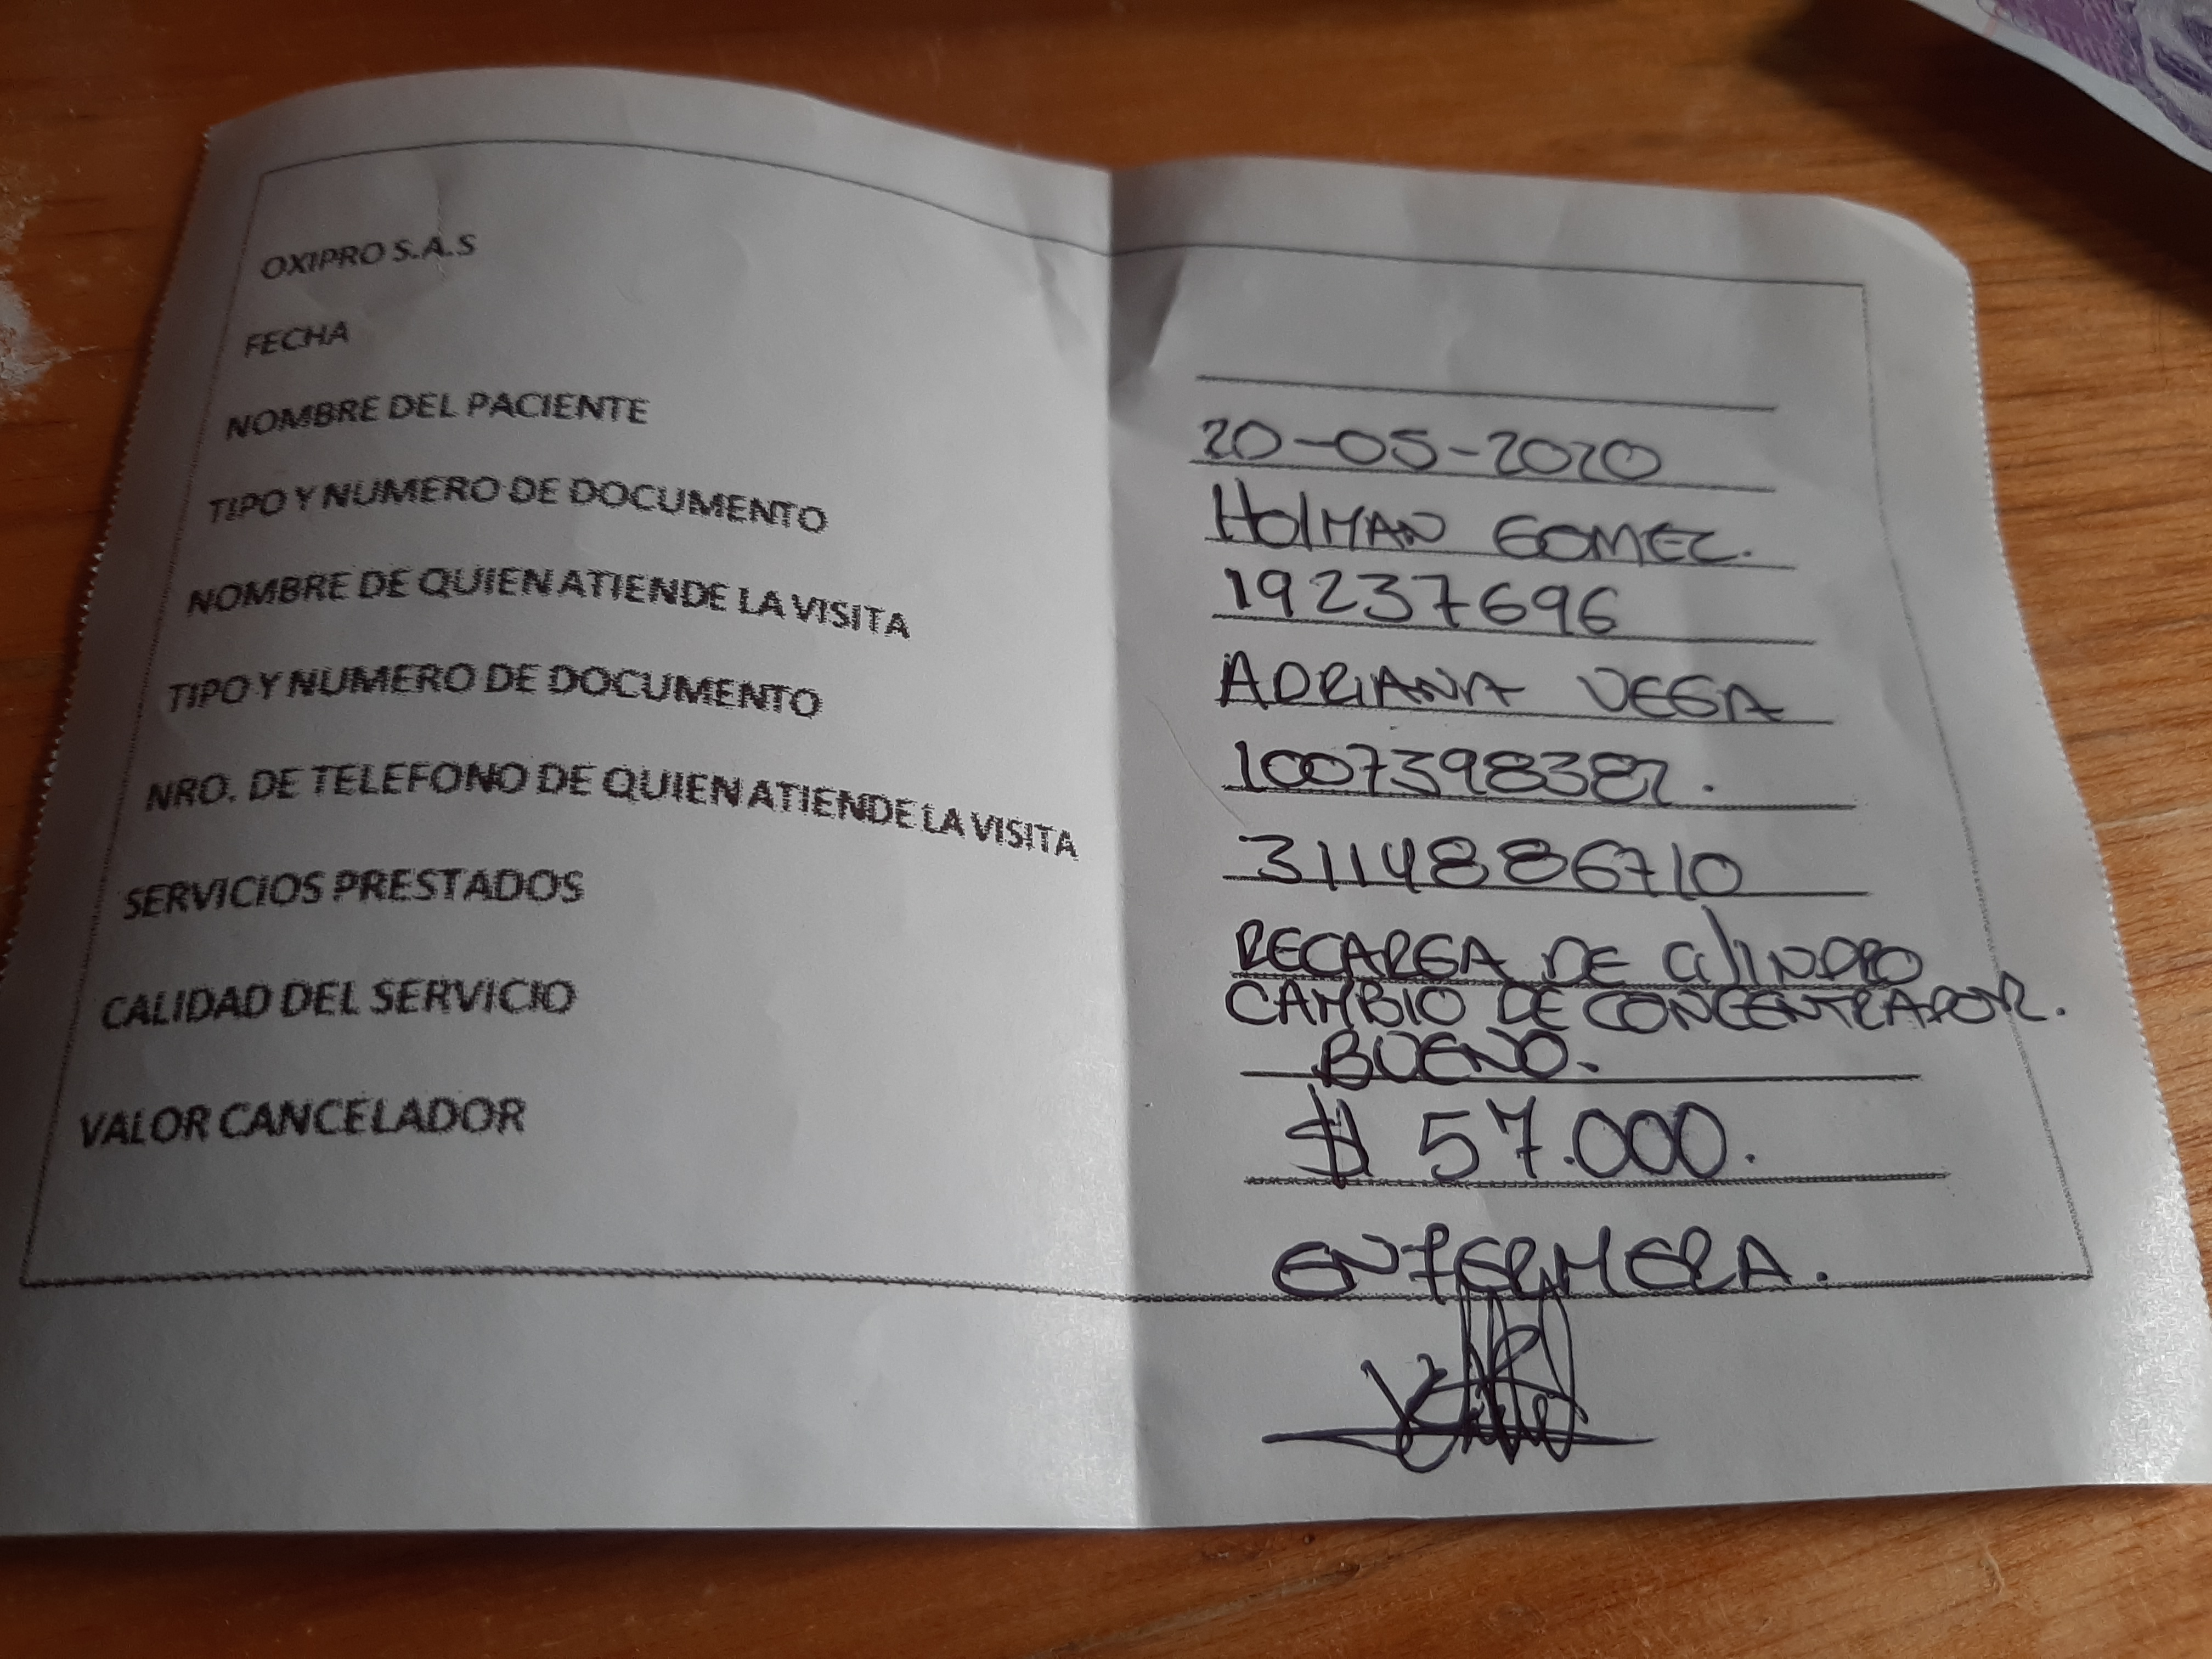 OXIPRO S.A.S
FECHA 20-05-2020
NOMBRE DEL PACIENTE HOLMAN GOMEZ.
TIPO Y NUMERO DE DOCUMENTO 19237696
NOMBRE DE QUIEN ATIENDE LA VISITA ADRIANA VEGA
TIPO Y NUMERO DE DOCUMENTO 1007398382.
NRO. DE TELEFONO DE QUIEN ATIENDE LA VISITA 3114886710
SERVICIOS PRESTADOS RECARGA DE CILINDRO
CAMBIO DE CONCENTRADOR.
CALIDAD DEL SERVICIO BUENO.
VALOR CANCELADOR $ 57.000.
ENFERMERA.